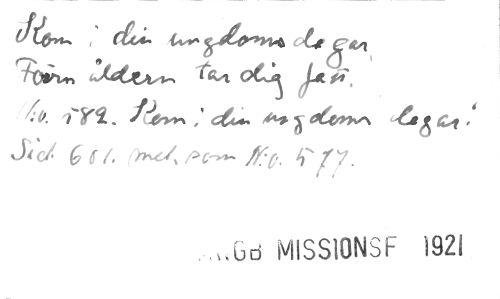 Kom i din ungdoms dagar,
Förrn åldern tar dig fatt.
N:o. 582. Kom i din ungdoms dagar!
Sid. 601. mel. som N:o. 577.
NGB MISSIONSF 1921